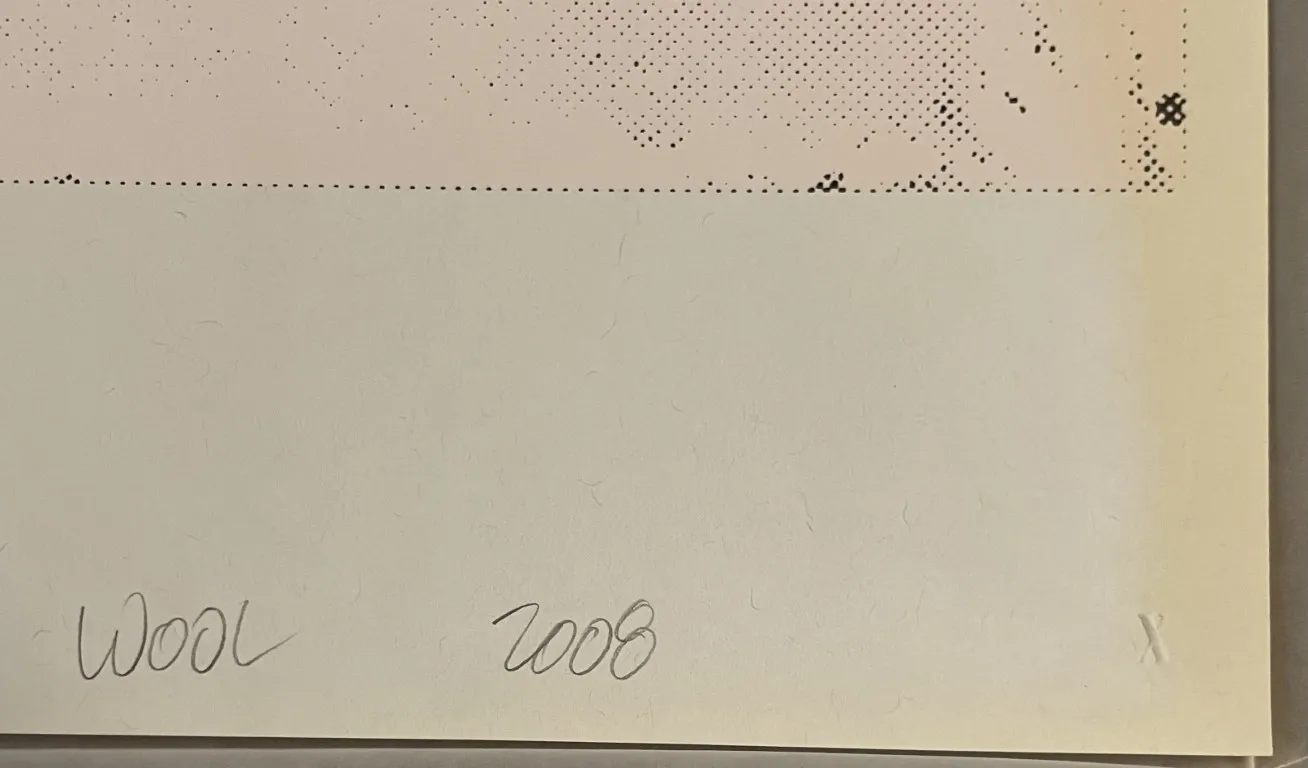 WOOL 2008 X